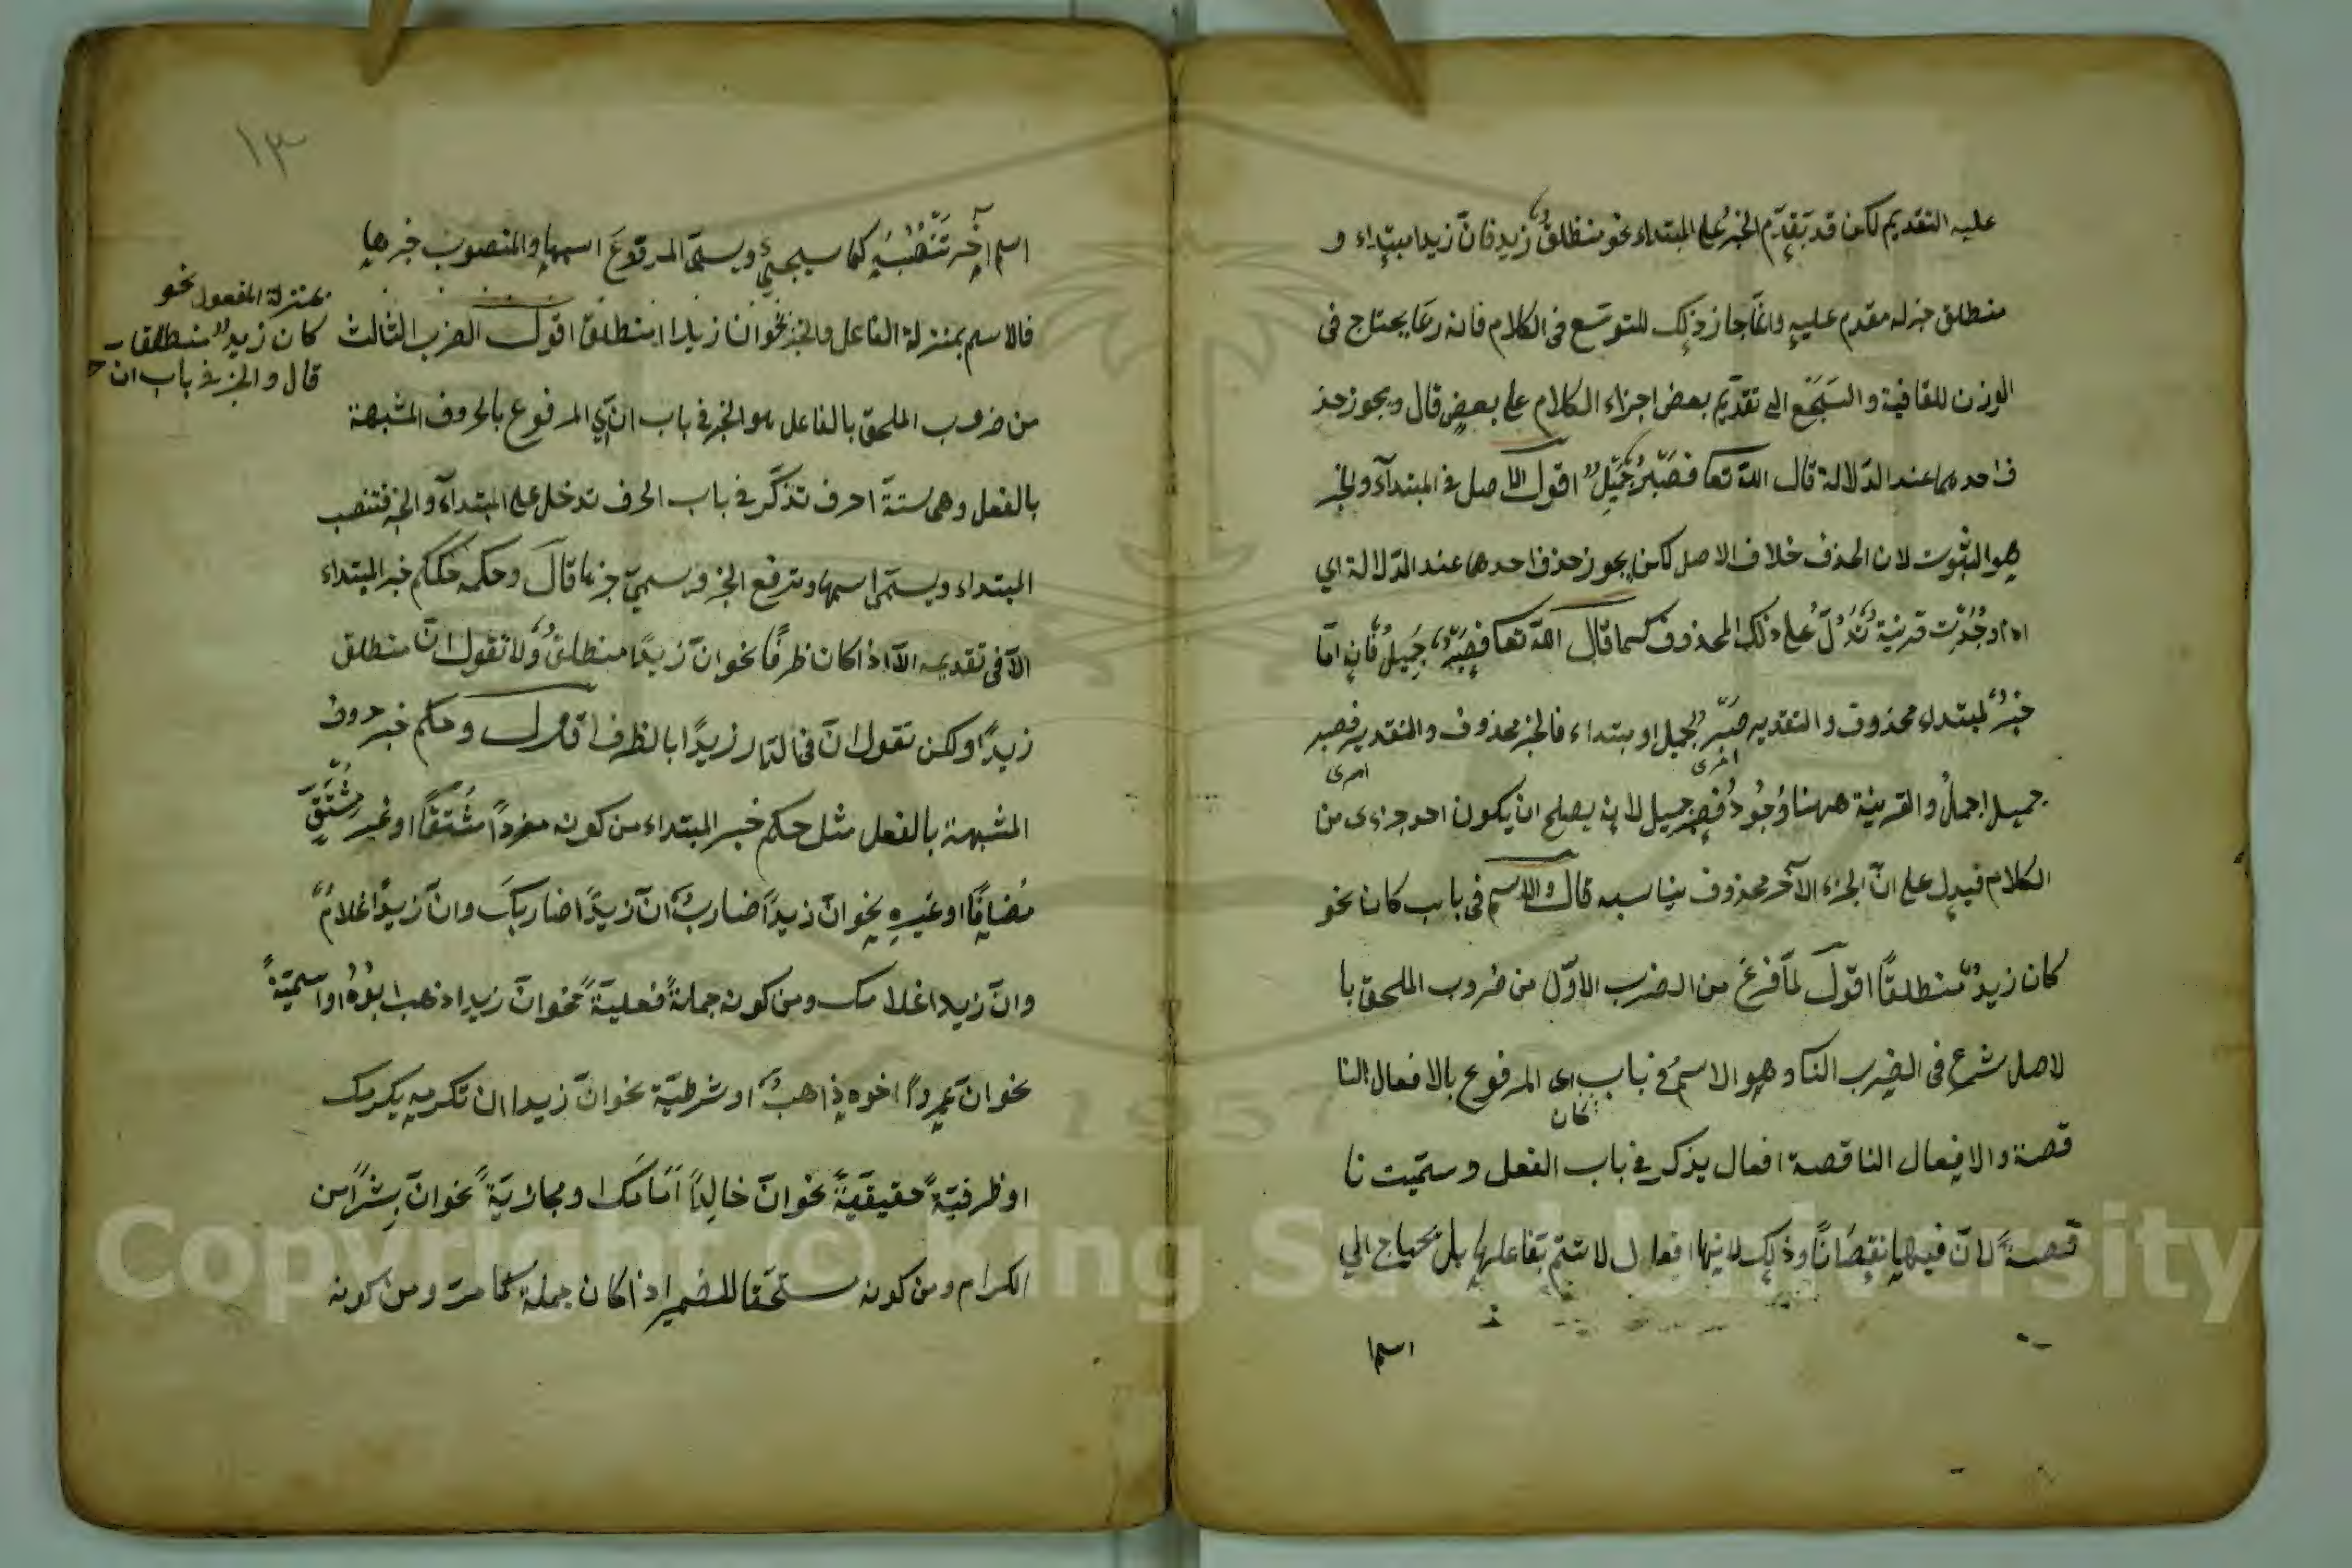 عليه التقديم لكن قد يتقدم الخبر على المبتداء نحو منطلقٌ زيد فانّ زيدا مبتداء و
منطلق خبر له مقدم عليه وانما جاز ذلك للتوسّع فى الكلام فانه ربما يحتاج فى
الوزن للقافية والسجع الى تقديم بعض اجزاء الكلام على بعض قال ويجوز حذ
ف احدهما عند الدّلالة قال اللّه تعا فصبرٌ جميلٌ اقول الاصل فى المبتدآء والخبر
هو الثبوت لان الحذف خلاف الاصل لكن يجوز حذف احدهما عند الدّلالة اي
اذا وجدت قرينة تدلّ على ذلك المحذوف كما قال اللّه تعا فصبرٌ جميلٌ فانه امّا
خبرٌ لمبتداء محذوف والتقدير صبرٌ جميل او مبتداء فالخبر محذوف والتقدير فصبر
اخرى امرى
جميل اجمل والقرينة ههنا وجود فصبر جميل لانه يصلح ان يكون احد جزءى من
الكلام فيدل على انّ الجزء الآخر محذوف يناسبه قال والاسم فى باب كان نحو
كان زيدٌ منطلقًا اقول لمّا فرغ من الضرب الاوّل من ضروب الملحق با
لاصل شرع فى الضرب الثا وهو الاسم فى باب اى المرفوع بالافعال النا
كان
قصة والافعال الناقصة افعال يذكر فى باب الفعل وسمّيت نا
قصةً لانّ فيها نقصانًا وذلك لانها افعال لا تتم بفاعلها بل يحتاج الى
اسما
١٣
اسم آخر تنصبه كما سيجيئ ويسمّى المرفوع اسمها والمنصوب خبرها
فالاسم بمنزلة الفاعل والخبر نحو ان زيدا منطلق اقول الضرب الثالث
بمنزلة المفعول نحو
كان زيدٌ منطلقا
قال والخبر فى باب ان
من ضروب الملحق بالفاعل هو الخبر فى باب انّ اي المرفوع بالحروف المشبهة
بالفعل وهى ستة احرف تذكر فى باب الحرف تدخل على المبتدآء والخبر فتنصب
المبتداء ويسمّى اسمها وترفع الخبر ويسمى خبرها قال وحكمه كحكم خبر المبتداء
الاّ فى تقديمه الاّ اذا كان ظرفًا نحو انّ زيدًا منطلقٌ ولا تقول انّ منطلق
زيدًا ولكن تقول انّ فى الدار زيدًا بالظرف اقول وحكم خبر حروف
المشبهة بالفعل مثل حكم خبر المبتداء من كونه مفردًا مشتقًا او غير مشتقّ
مضافًا او غيره نحو انّ زيدًا ضاربٌ انّ زيدًا ضاربك وانّ زيدًا غلامٌ
وانّ زيدا غلامك ومن كونه جملةً فعليّةً نحو انّ زيدا ذهب ابوهُ او اسميّةً
نحو انّ عمروًا اخوه ذاهبٌ او شرطيّة نحو انّ زيدا ان تكرمه يكرمك
او ظرفيّةً حقيقيّةً نحو انّ خالدًا امامك او مجازيّةً نحو انّ بشرًا من
الكرام ومن كونه مستحقا للضمير اذا كان جملة كما مرّ ومن كونه
Copyright © King Saud University
1957